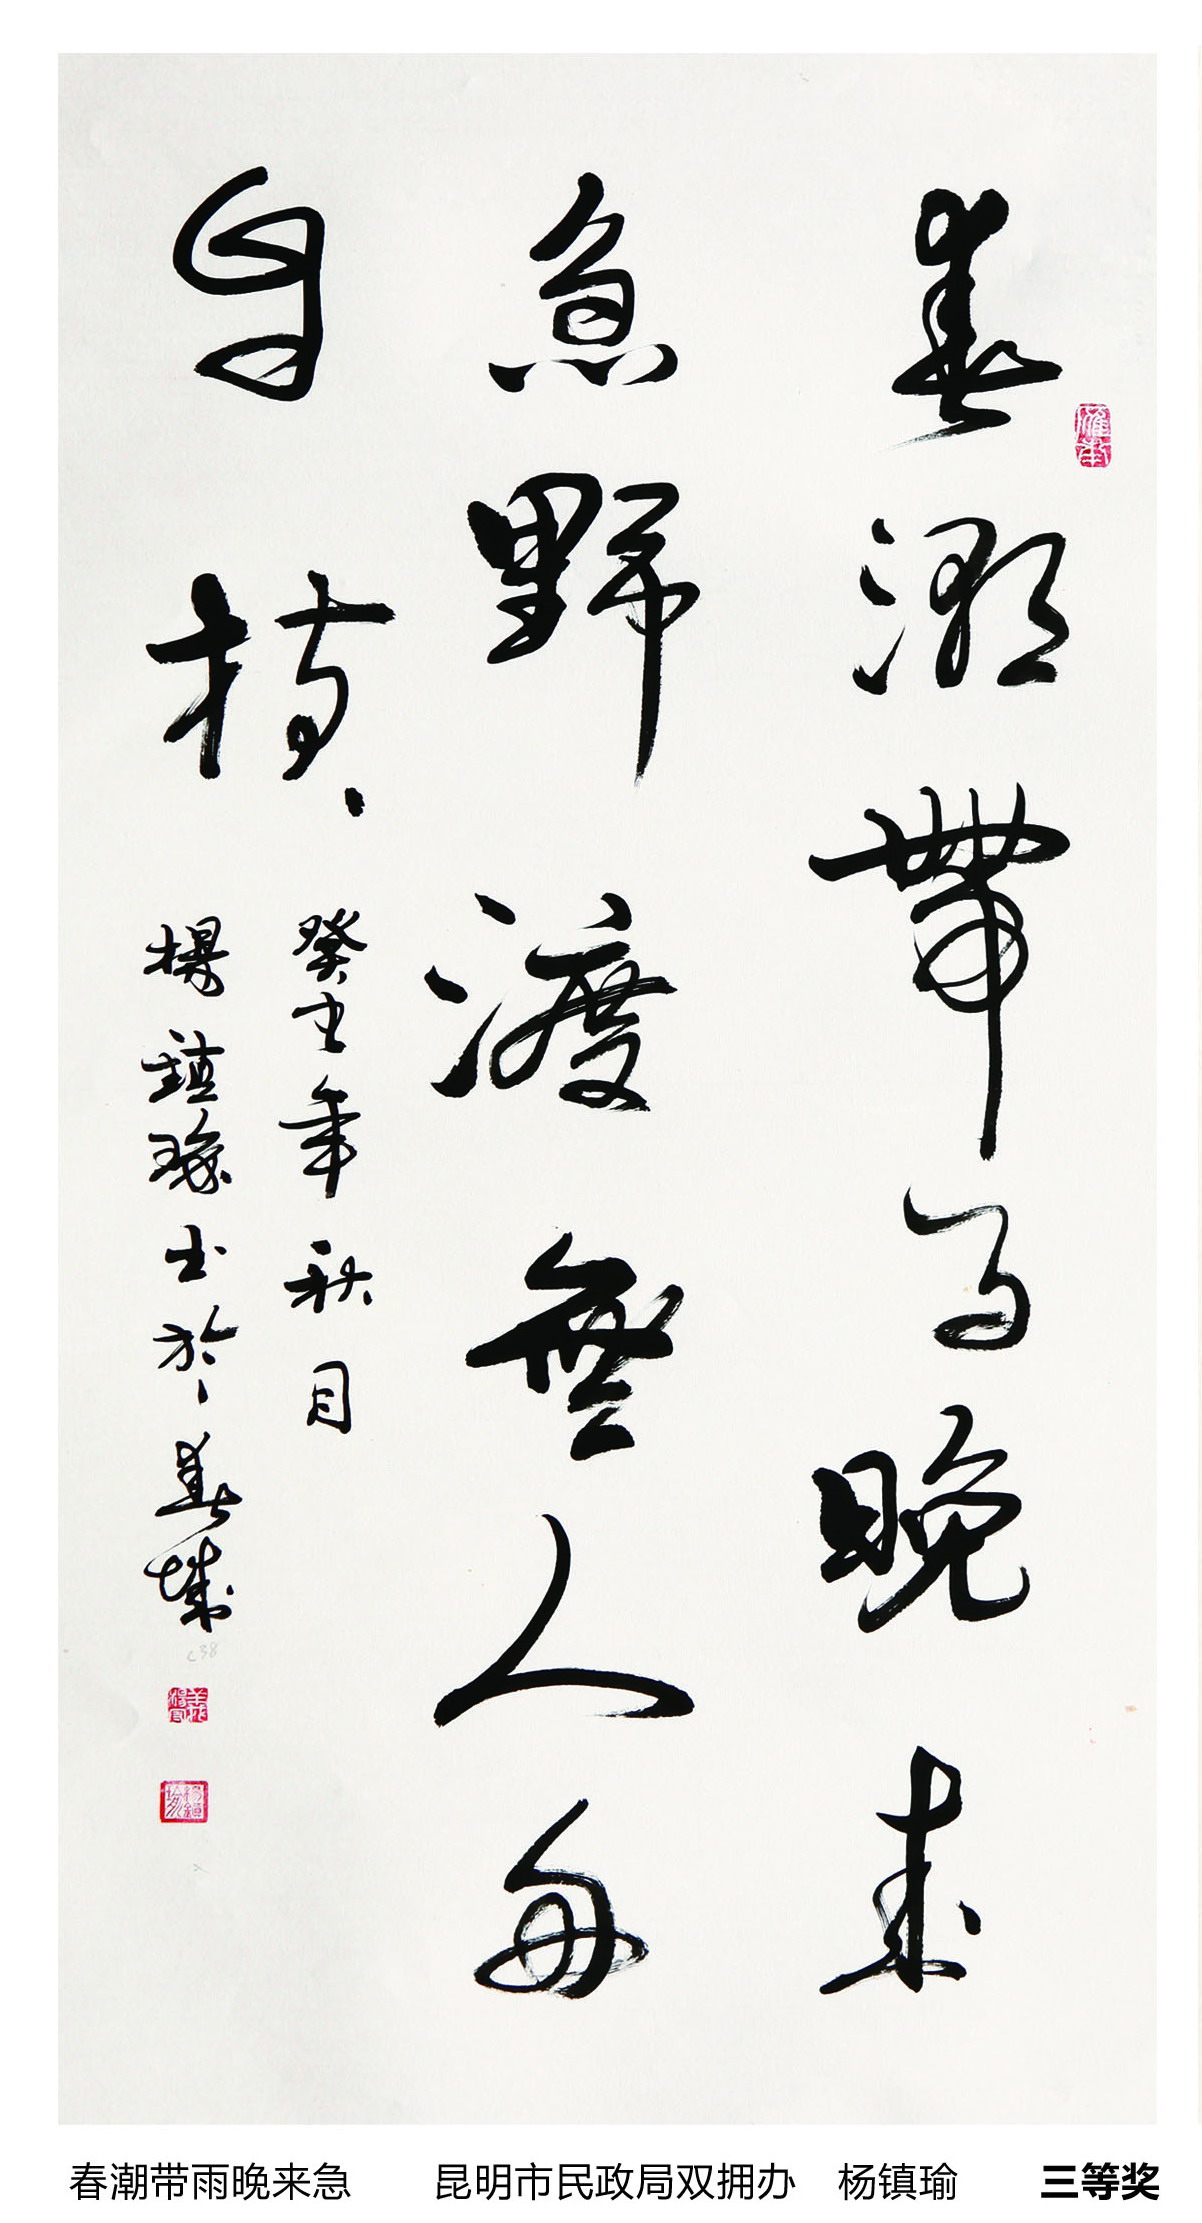 春潮帶雨晚来
急野渡無人舟
自横
癸卯年秋月
楊鎮瑜书於春城
春潮带雨晚来急 昆明市民政局双拥办 杨镇瑜 三等奖